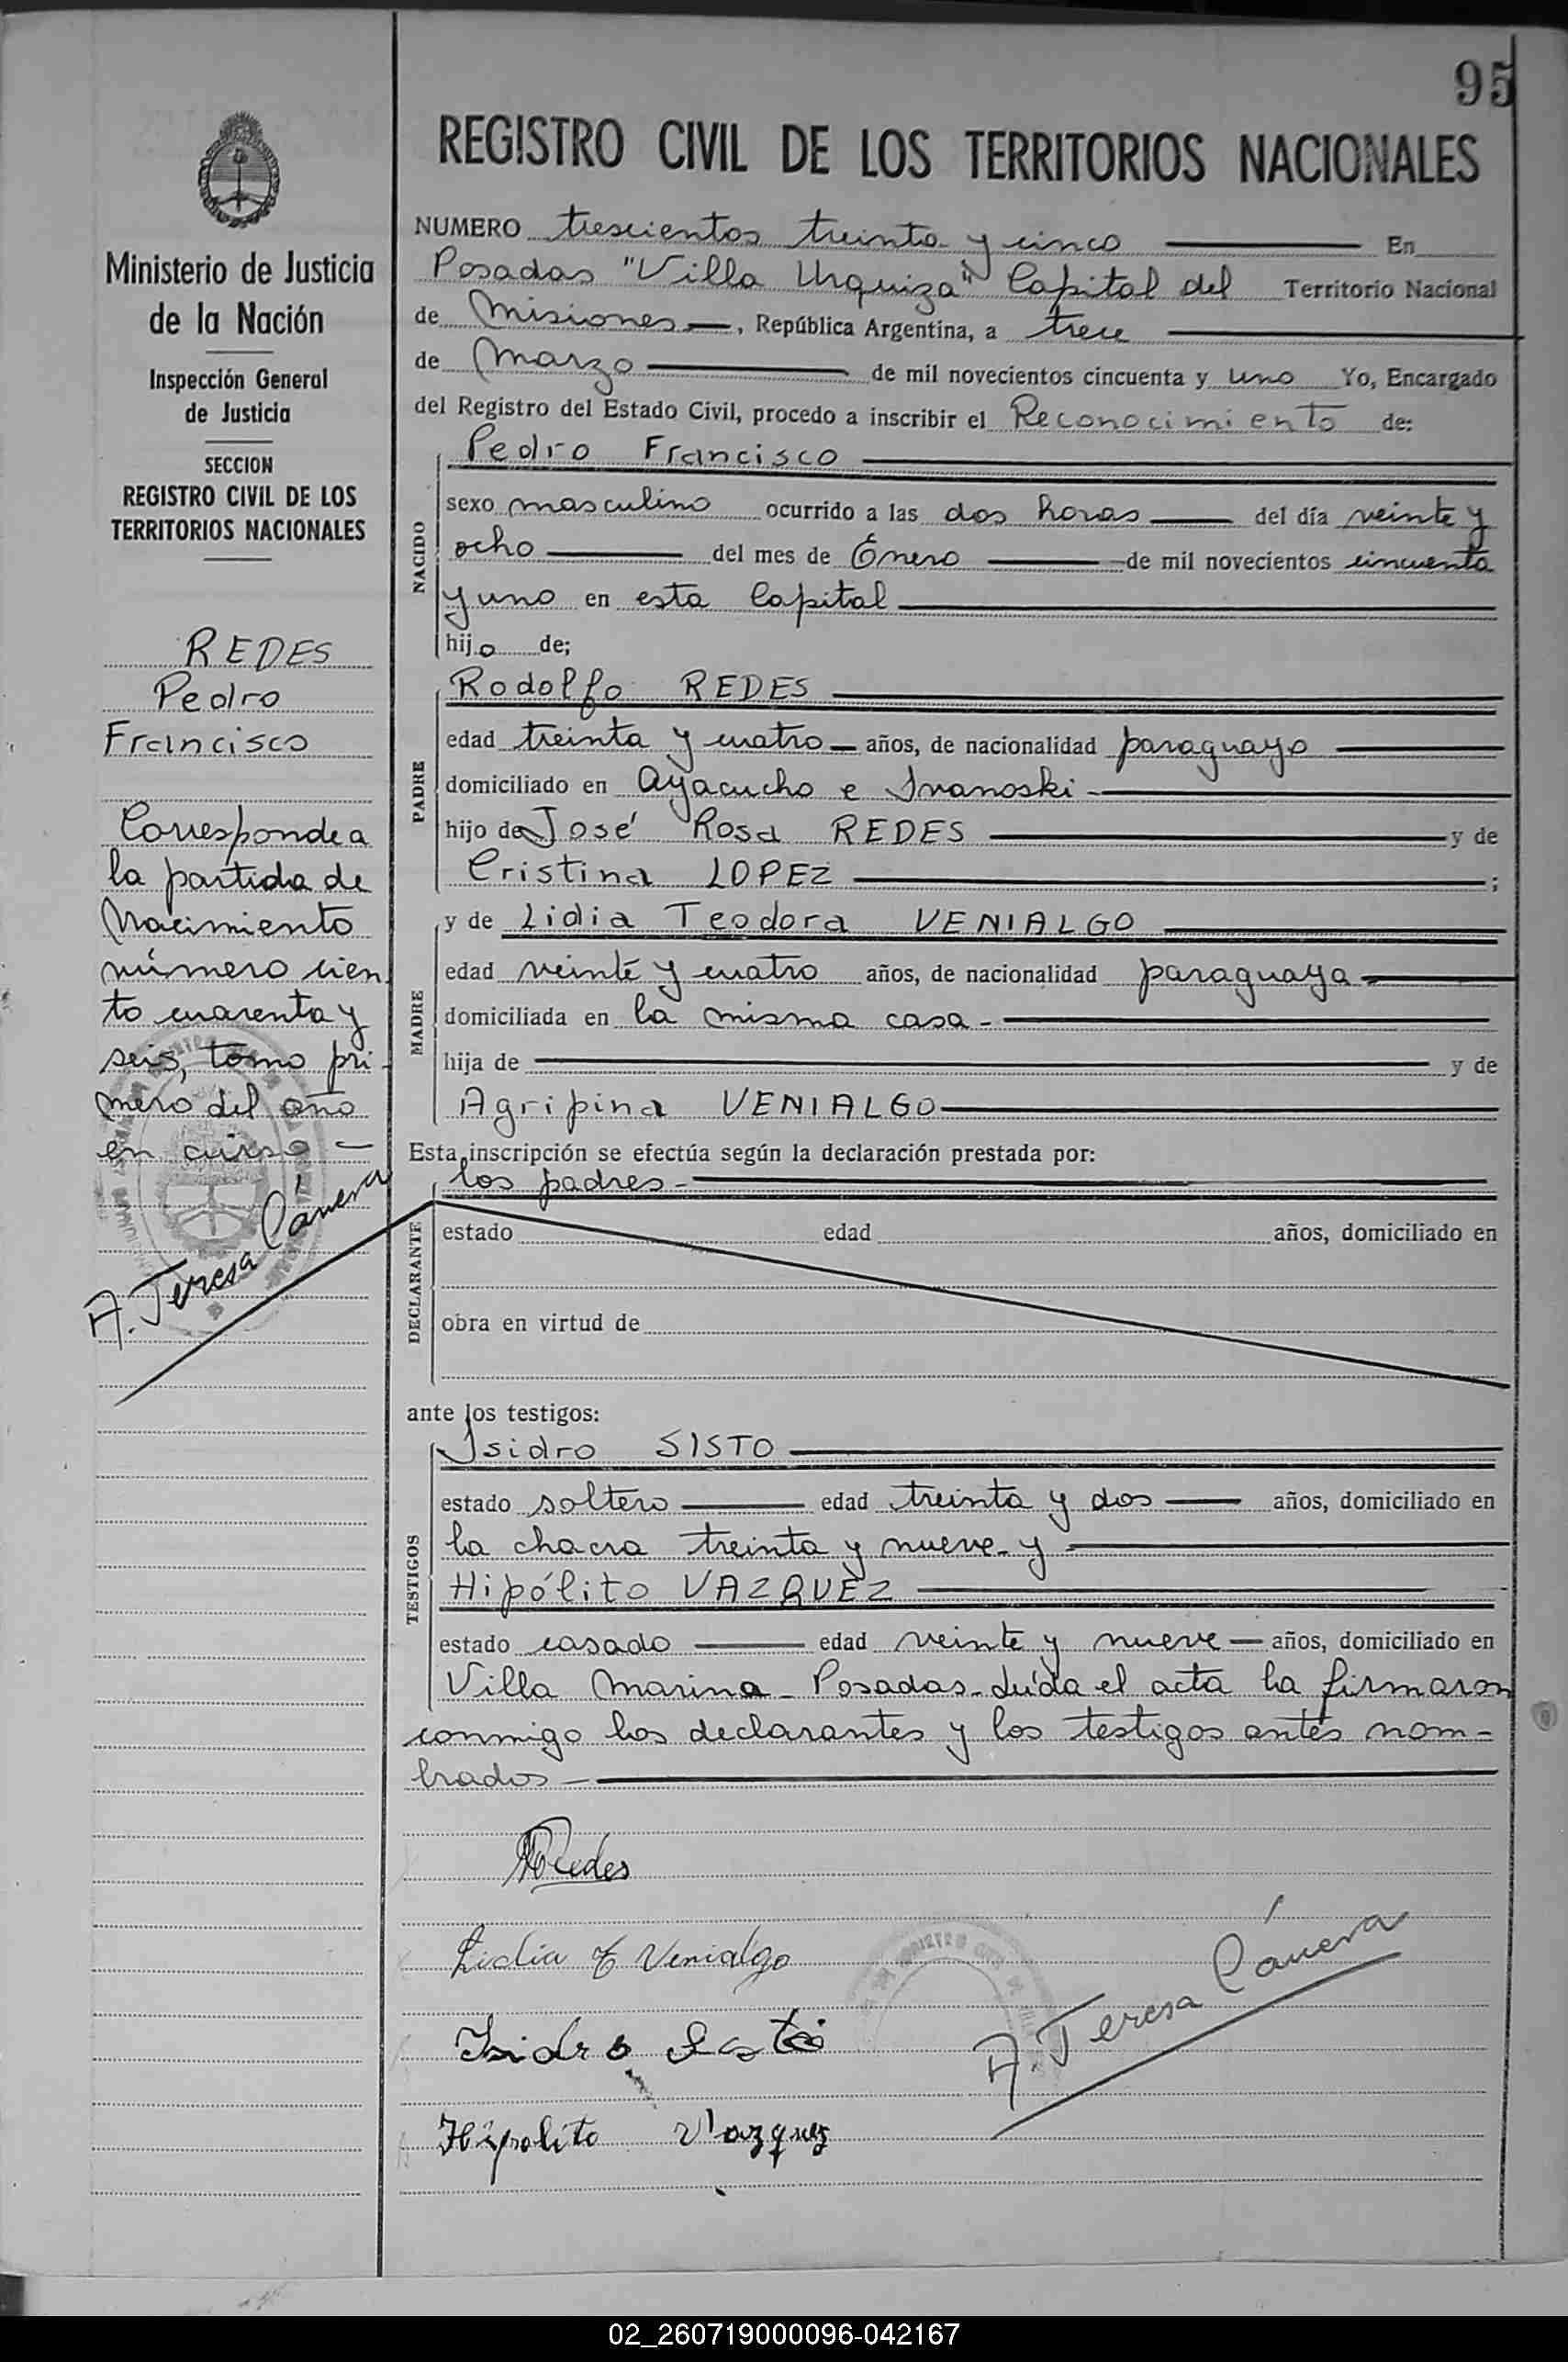 95
REGISTRO CIVIL DE LOS TERRITORIOS NACIONALES
Ministerio de Justicia
de la Nación
Inspección General
de Justicia
SECCION
REGISTRO CIVIL DE LOS
TERRITORIOS NACIONALES
REDES
Pedro
Francisco
Corresponde a
la partida de
Nacimiento
número cien
to cuarenta y
seis, tomo pri-
mero del año
en curso —
A. Teresa Cánera
NUMERO trescientos treinta y cinco En
Posadas "Villa Urquiza" Capital del Territorio Nacional
de Misiones —, República Argentina, a trece
de Marzo de mil novecientos cincuenta y uno Yo, Encargado
del Registro del Estado Civil, procedo a inscribir el Reconocimiento de:
NACIDO
Pedro Francisco
sexo masculino ocurrido a las dos horas del día veinte y
ocho del mes de Enero de mil novecientos cincuenta
y uno en esta Capital
hijo de;
PADRE
Rodolfo REDES
edad treinta y cuatro años, de nacionalidad paraguayo
domiciliado en Ayacucho e Ivanoski -
hijo de José Rosa REDES y de
Cristina LOPEZ ;
MADRE
y de Lidia Teodora VENIALGO
edad veinte y cuatro años, de nacionalidad paraguaya
domiciliada en la misma casa -
hija de y de
Agripina VENIALGO
Esta inscripción se efectúa según la declaración prestada por:
DECLARANTE
los padres -
estado edad años, domiciliado en
obra en virtud de
ante los testigos:
TESTIGOS
Isidro SISTO
estado soltero edad treinta y dos años, domiciliado en
la chacra treinta y nueve - y
Hipólito VAZQUEZ
estado casado edad veinte y nueve años, domiciliado en
Villa Marina - Posadas - Leída el acta la firmaron
conmigo los declarantes y los testigos antes nom-
brados -
Redes
Lidia T Venialgo
Isidro
A. Teresa Cánera
Hipolito Vazquez
02_260719000096-042167